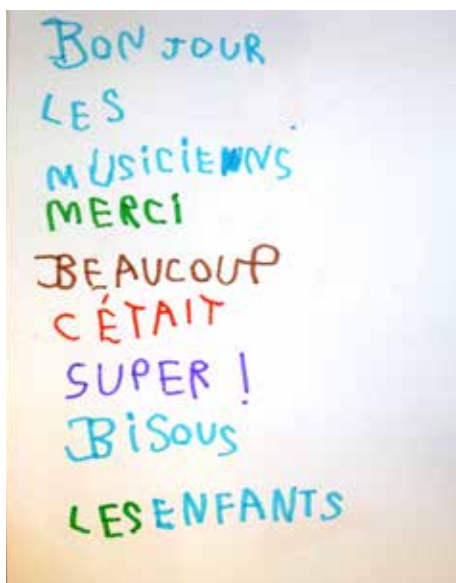 BONJOUR
LES
MUSICIENS
MERCI
BEAUCOUP
C ÉTAIT
SUPER !
BISOUS
LES ENFANTS